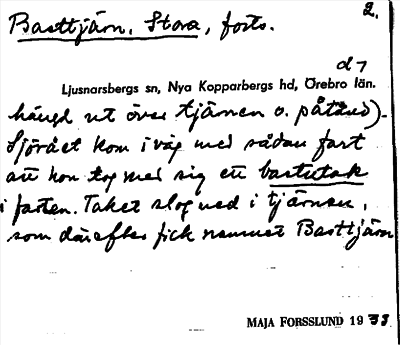 Basttjärn, Stora, forts.
2.
d 7
Ljusnarsbergs sn, Nya Kopparbergs hd, Örebro län.
hängd ut över tjärnen o. påtänd).
Sjörået kom iväg med sådan fart
att hon tog med sig ett bastutak
i farten. Taket slog ned i tjärnen,
som därefter fick namnet Basttjärn
MAJA FORSSLUND 19 33